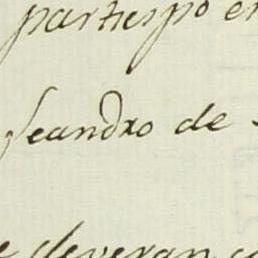 participó en
Leandro de
deveran